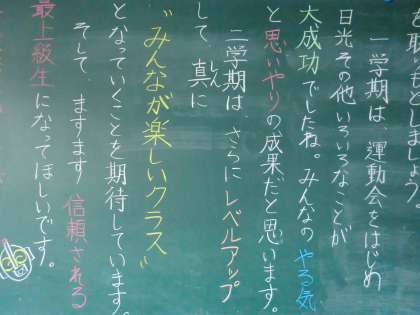 しましょう。
一学期は、運動会をはじめ
日光その他いろいろなことが
大成功でしたね。みんなの やる気
と思いやりの成果だと思います。
二学期は、さらにレベルアップ
して、真に
しん
〝みんなが楽しいクラス〟
となっていくことを期待しています。
そして、ますます 信頼される
最上級生になってほしいです。